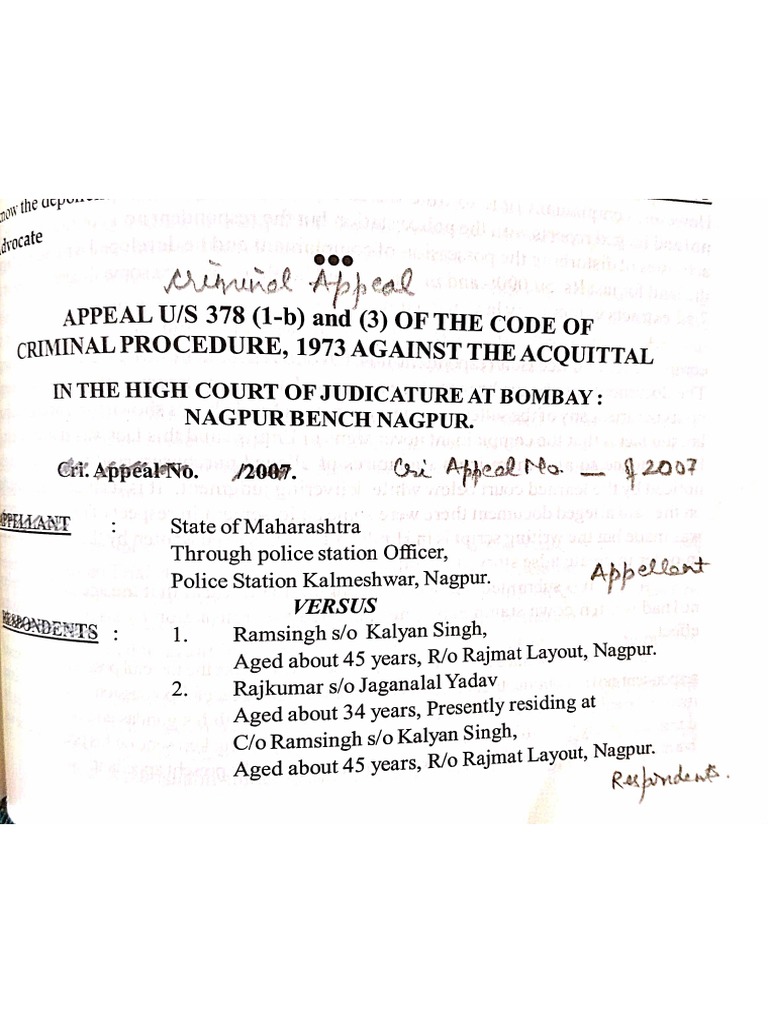 now the
dvocate
•••
Criminal Appeal
APPEAL U/S 378 (1-b) and (3) OF THE CODE OF
CRIMINAL PROCEDURE, 1973 AGAINST THE ACQUITTAL
IN THE HIGH COURT OF JUDICATURE AT BOMBAY :
NAGPUR BENCH NAGPUR.
Cri. Appeal No. /2007. Cri Appeal No. — of 2007
APPELLANT : State of Maharashtra
Through police station Officer,
Police Station Kalmeshwar, Nagpur. Appellent
VERSUS
RESPONDENTS : 1. Ramsingh s/o Kalyan Singh,
Aged about 45 years, R/o Rajmat Layout, Nagpur.
2. Rajkumar s/o Jaganalal Yadav
Aged about 34 years, Presently residing at
C/o Ramsingh s/o Kalyan Singh,
Aged about 45 years, R/o Rajmat Layout, Nagpur.
Respondents.